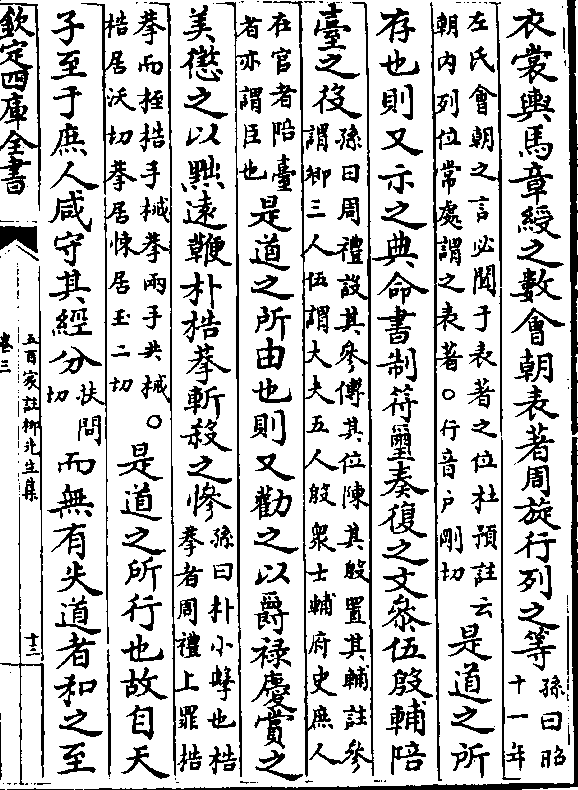 衣裳輿馬章綬之數會朝表著周旋行列之等孫曰昭
十一年
左氏會朝之言必聞于表著之位杜預註云
朝內列位常處謂之表著○行音戶剛切
是道之所
存也則又示之典命書制符璽奏復之文參伍殷輔陪
臺之役孫曰周禮設其參傅其位陳其殷置其輔註參
謂卿三人伍謂大夫五人殷衆士輔府史庶人
在官者陪臺
者亦謂臣也
是道之所由也則又勸之以爵祿慶賞之
美懲之以黜遠鞭朴梏拲斬殺之慘孫曰朴小孽也梏
拲者周禮上罪梏
拲而桎梏手械拲兩手共械
梏居沃切拲居悚居玉二切
○是道之所行也故自天
子至于庶人咸守其經分扶問
切
而無有失道者和之至
欽定四庫全書
五百家註柳先生集
卷三
十三